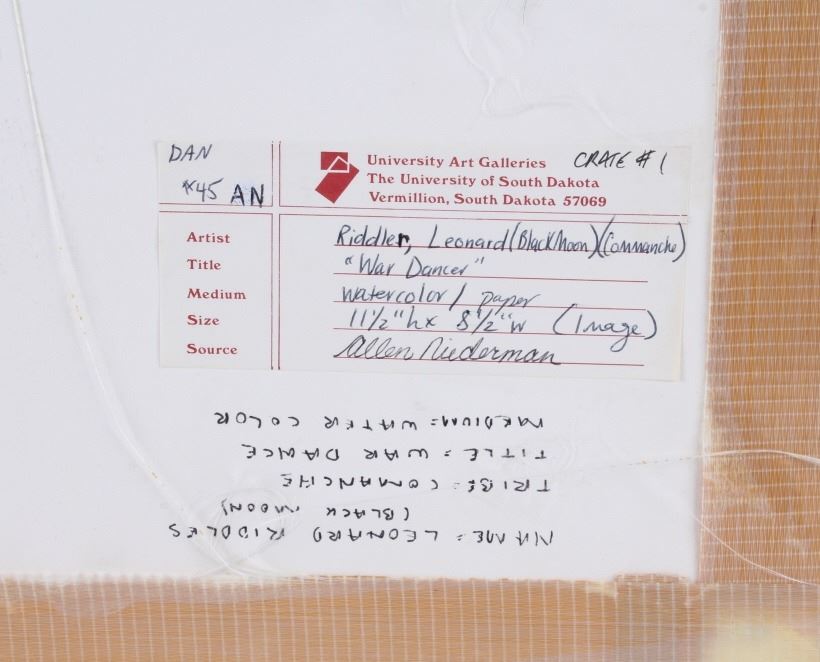 DAN
*45 AN
University Art Galleries
The University of South Dakota
Vermillion, South Dakota 57069
CRATE # 1
Artist Riddler, Leonard (Black Moon) (Commanche)
Title "War Dancer"
Medium watercolor / paper
Size 11 1/2" h x 8 1/2" w (Image)
Source Allen Niederman
NAME = LEONARD RIDDLES
(BLACK MOON)
TRIBE = COMANCHE
TITLE = WAR DANCE
MEDIUM = WATER COLOR